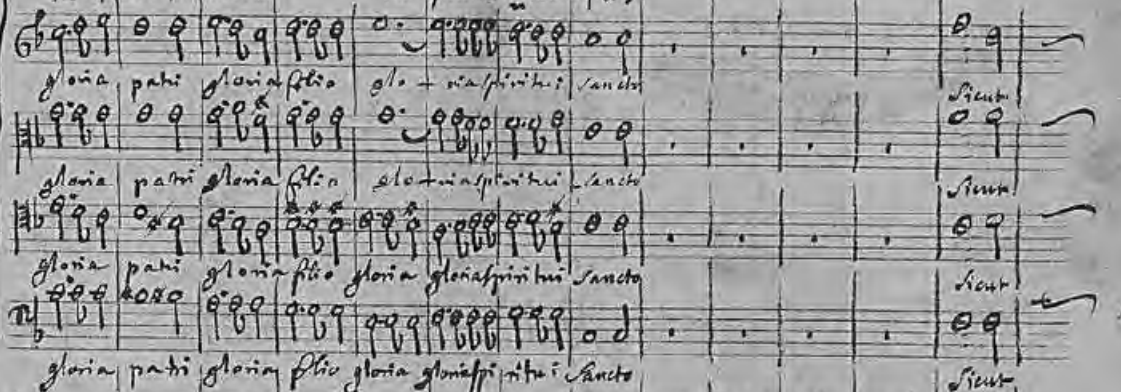 gloria patri gloria filio glo - ria spiritui Sancto Sicut
gloria patri gloria filio glo - ria spiritui Sancto Sicut
gloria patri gloria filio gloria gloria spiritui Sancto Sicut
gloria patri gloria filio gloria gloria spiritui Sancto Sicut